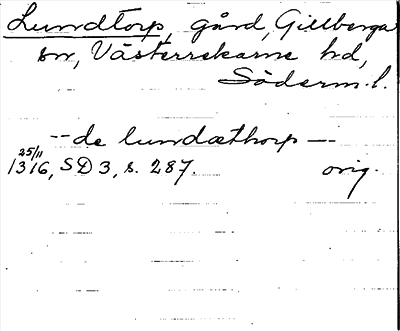 Lundtorp, gård, Gillberga
sn, Västerrekarne hd,
Söderm.l.
-- de lundæthorp --
25/11
1316, SD 3, s. 287. orig.